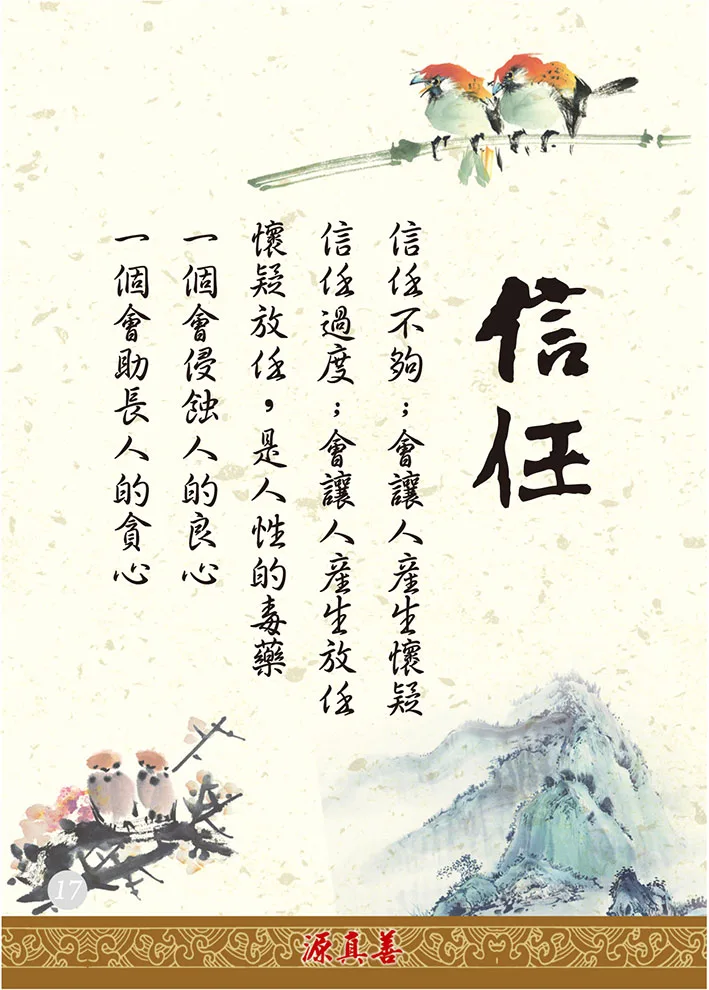 信任
信任不夠；會讓人產生懷疑
信任過度；會讓人產生放任
懷疑放任，是人性的毒藥
一個會侵蝕人的良心
一個會助長人的貪心
17
源真善